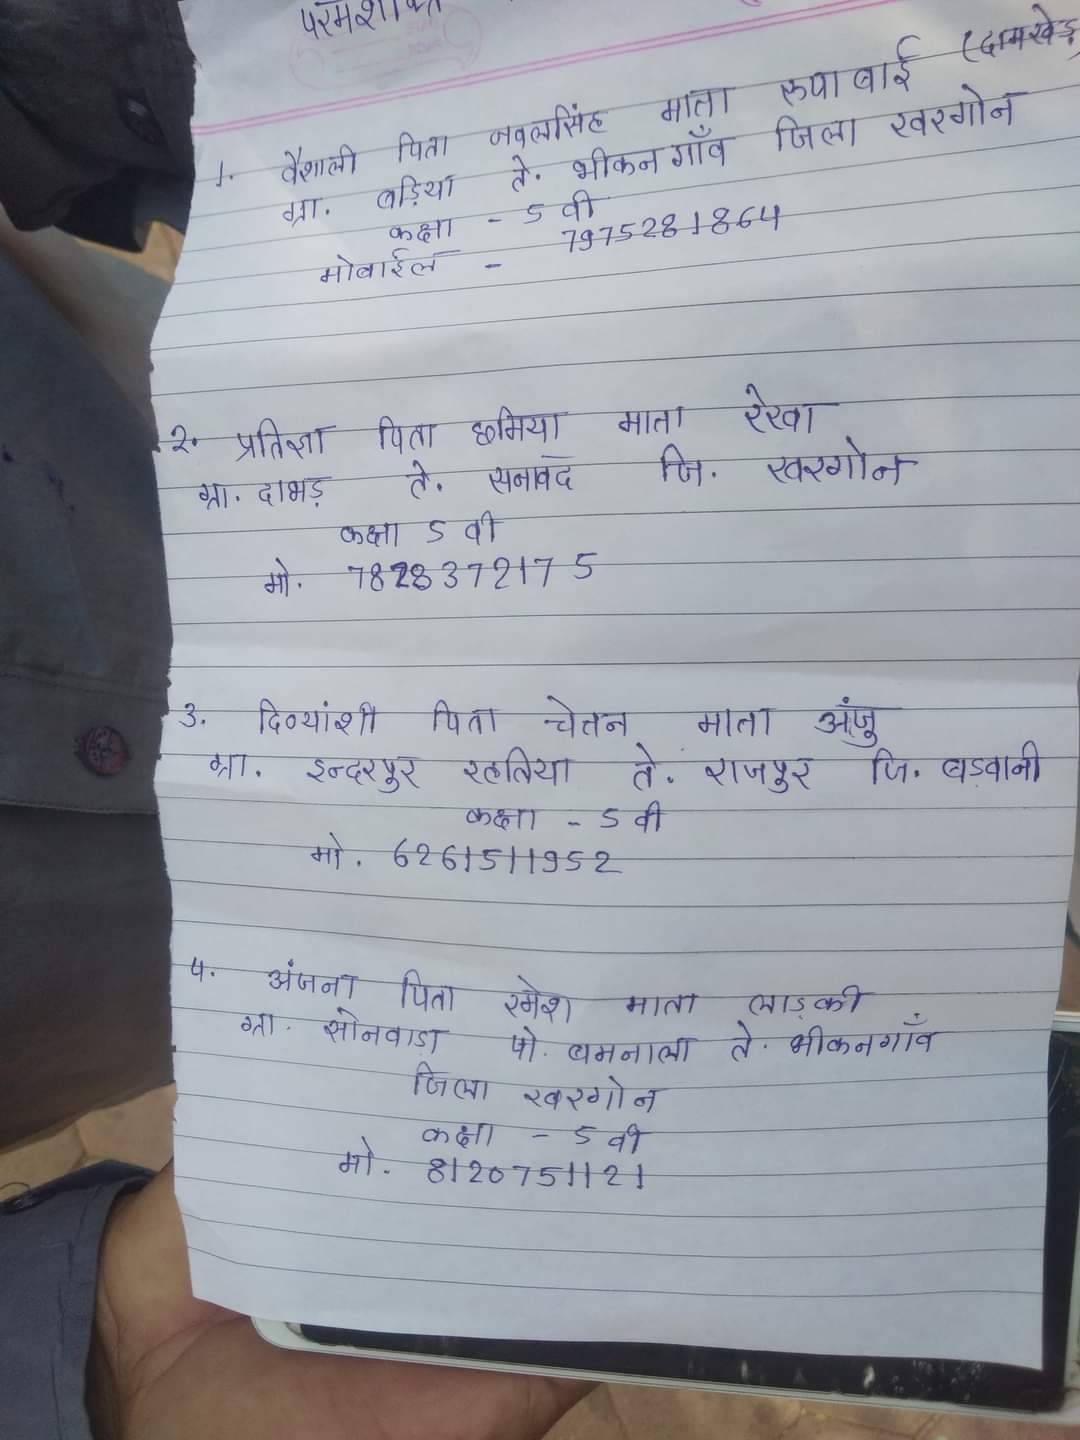 परमशक्ति
(दामखेड़
1. वैशाली पिता नवलसिंह माता रूपाबाई
ग्रा. बड़िया ते. भीकनगाँव जिला खरगोन
कक्षा - 5 वी
मोबाईल - 7975281864
2. प्रतिज्ञा पिता छमिया माता रेखा
ग्रा. दाभड़ ते. सनावद जि. खरगोन
कक्षा 5 वी
मो. 7828372175
3. दिव्यांशी पिता चेतन माता अंजु
ग्रा. इन्दरपुर रहतिया ते. राजपुर जि. बड़वानी
कक्षा - 5 वी
मो. 6261511952
4. अंजना पिता रमेश माता लाड़की
ग्रा. सोनवाड़ा पो. बमनाला ते. भीकनगाँव
जिला खरगोन
कक्षा - 5 वी
मो. 8120751121